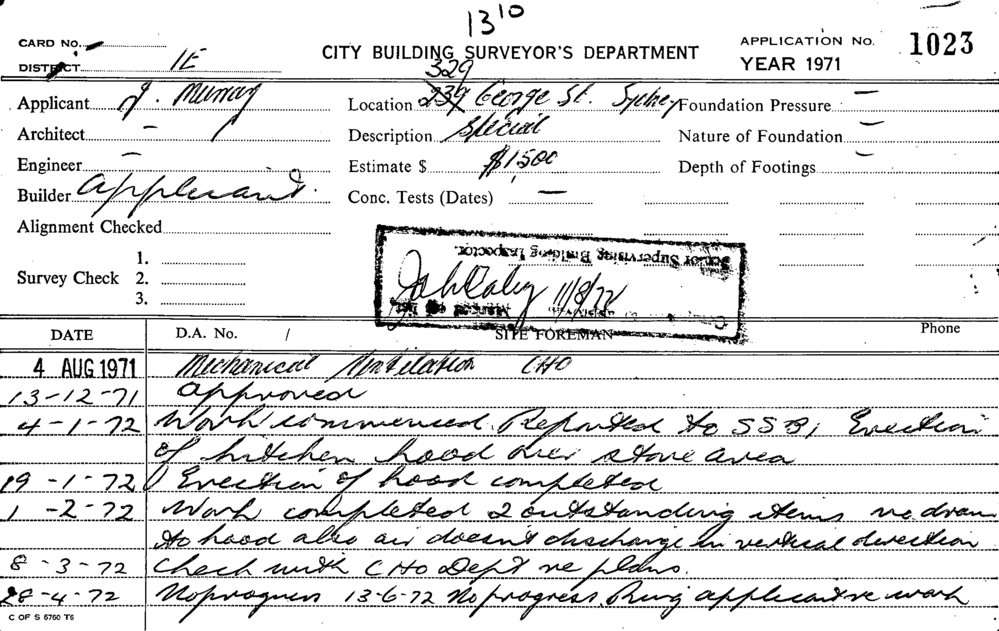 13 10
CARD No.
DISTRICT 1E
CITY BUILDING SURVEYOR'S DEPARTMENT
APPLICATION No. 1023
YEAR 1971
Applicant J. Murray
329
Location 239 George St. Sydney
Foundation Pressure —
Architect —
Description Special
Nature of Foundation —
Engineer —
Estimate $ $1,500
Depth of Footings —
Builder Applicant.
Conc. Tests (Dates) —
Alignment Checked
Survey Check
1.
2.
3.
Senior Supervising Building Inspector.
11/8/72
DATE
D.A. No. /
SITE FOREMAN
Phone
4 AUG 1971 Mechanical Ventilation CHO
13-12-71 approved
4-1-72 Work commenced. Reported to SSBI Erection
of kitchen hood over stove area
19-1-72 Erection of hood completed
1-2-72 Work completed 2 outstanding items no drain
to hood also air doesn't discharge in vertical direction
8-3-72 Check with CHO Dept re plans.
28-4-72 No progress 13-6-72 No progress. Ring applicant re work
C OF S 6760 T6